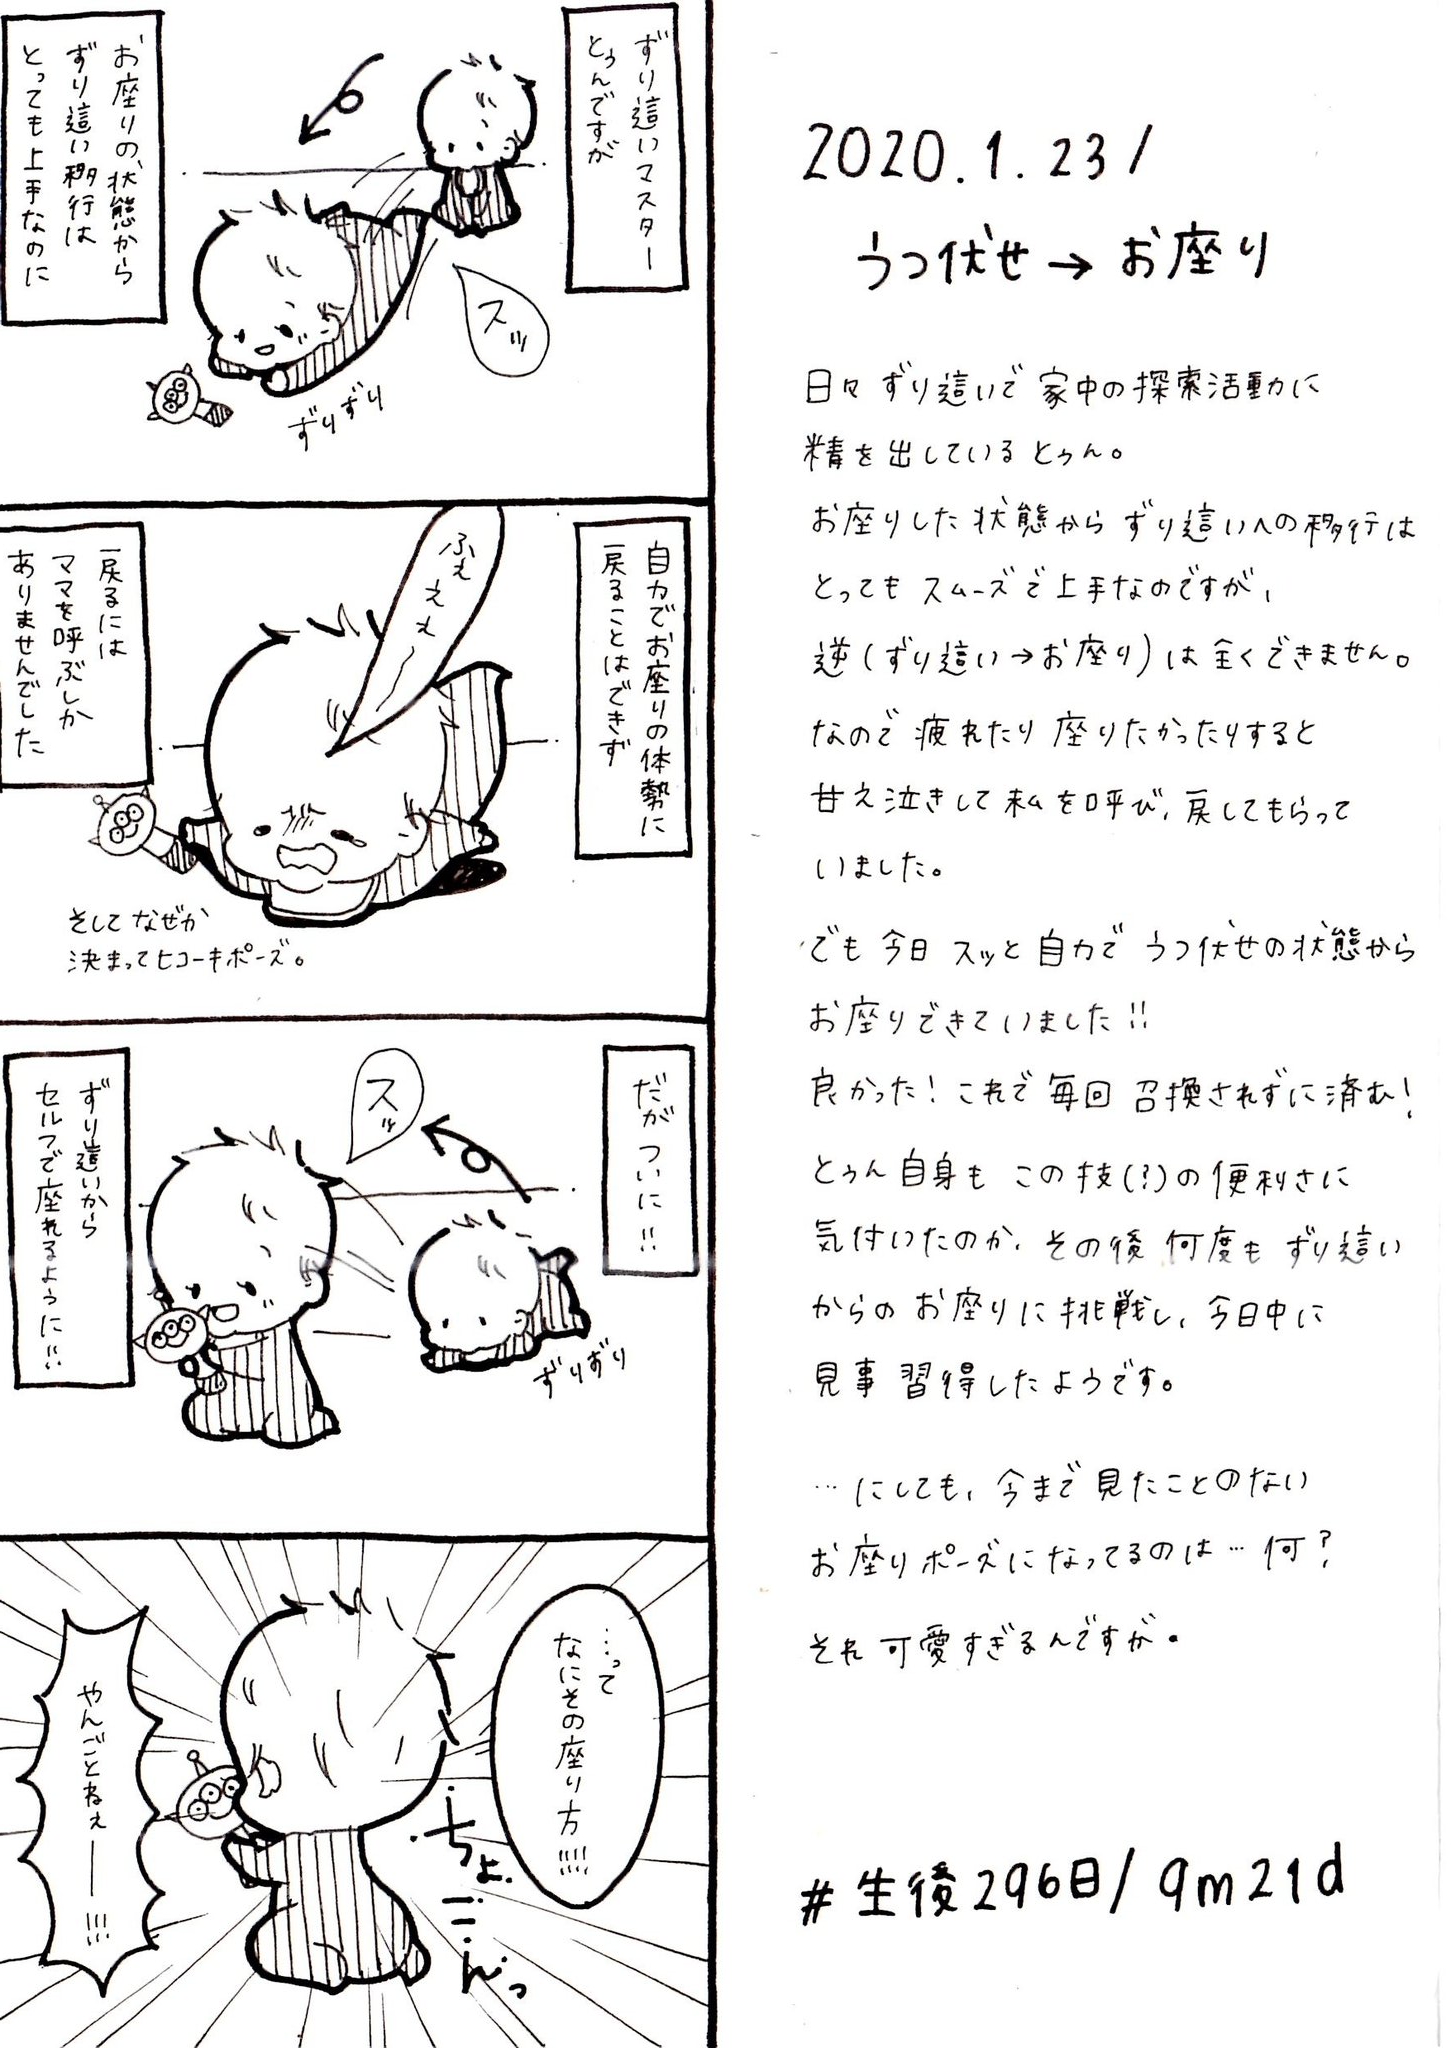 ずり這いマスター
とぅんですが
スッ
お座りの状態から
ずり這い移行は
とっても上手なのに
ずりずり
自力でお座りの体勢に
戻ることはできず
ふぇぇぇ〜
戻るには
ママを呼ぶしか
ありませんでした
そしてなぜか
決まってヒコーキポーズ。
だがついに!!
スッ
ずりずり
ずり這いから
セルフで座れるように!!
…って
なにその座り方!!!!
ちょこんっ
やんごとねぇ――!!!!
2020.1.23/
うつ伏せ→お座り
日々ずり這いで家中の探索活動に
精を出しているとぅん。
お座りした状態からずり這いへの移行は
とってもスムーズで上手なのですが、
逆(ずり這い→お座り)は全くできません。
なので疲れたり座りたかったりすると
甘え泣きして私を呼び、戻してもらって
いました。
でも今日スッと自力でうつ伏せの状態から
お座りできていました!!
良かった!これで毎回召換されずに済む!
とぅん自身もこの技(?)の便利さに
気付いたのか、その後何度もずり這い
からのお座りに挑戦し、今日中に
見事習得したようです。
…にしても、今まで見たことのない
お座りポーズになってるのは…何?
それ可愛すぎるんですが。
#生後296日/9m21d